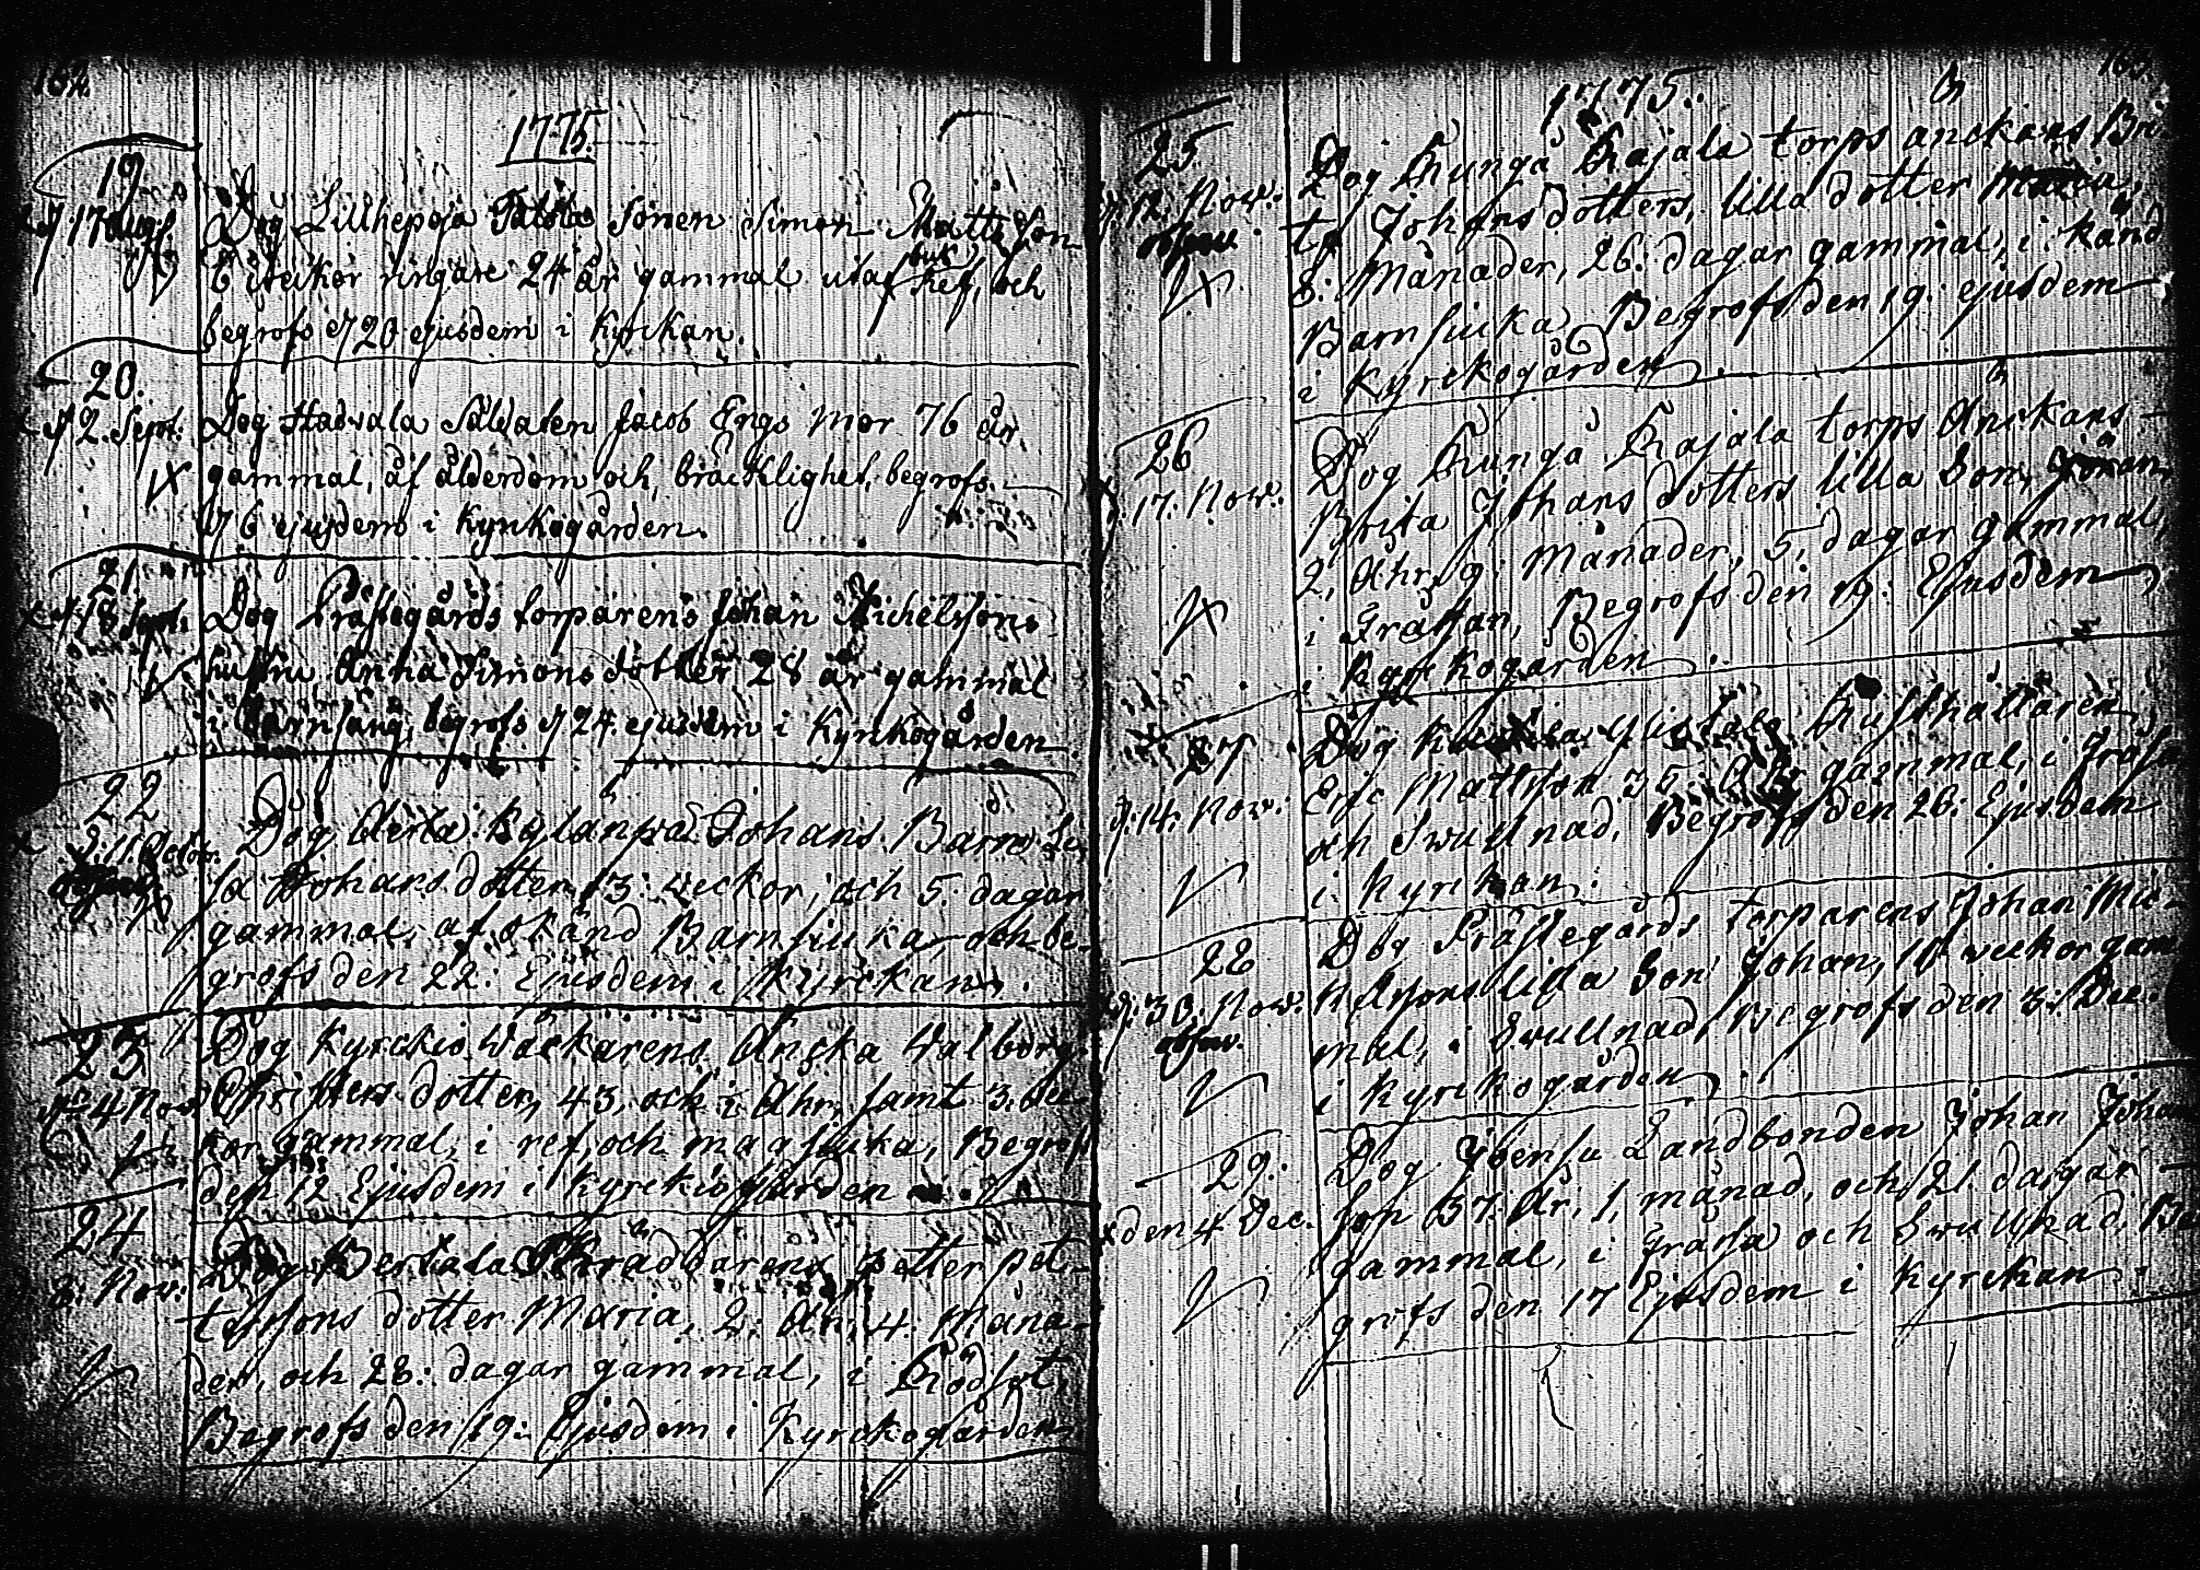 162.
1775.
19
d 17 Aug.
Dog Lillhepoja sonen Simon Matts Son
6 weckor ringare 24 år gammal utaf buk ref, och
begrofs d 20 ejusdem i Kyrckan.
20.
d 2. Sept.
Dog Hadvala Saldaten Jacob Engs Mor 76 år
gammal, af ålderdom och bräcklighet, begrofs
d 6 ejusdem i Kyrkogården.
21
d 18 Sept.
Dog Prästegårds torparens Johan Michelssons
hustru Anna Simons dotter 28 år gammal
i Barnsäng, begrofs d 24. ejusdem i Kyrkogården
22
Dog Kylänpä Johans Barn Li-
sa Johans dotter 13: weckor, och 5. dagar
gammal, af okänd Barnsiuka, och be-
grofs den 22: Ejusdem i Kyrckan.
23
d 4 Nov.
Dog Kyrckio Wäckarens Äncka Walborg
Christers dotter, 43, och i Ähr, samt 3. wec-
kor gammal, i ref, och magsiuka, Begrofs
den 12 Ejusdem i Kyrckiogården
24
8. Nov:
Dog Bertala Skräddarens Petter Pet-
terssons dotter Maria, 2: Åhr, 4: Måna-
der, och 28: dagar gammal, i Rödsot,
Begrofs den 19: Ejusdem i Kyrckogården
163.
1775.
25
d. 12. Nov.
obserw.
Dog Runga Rajala torps anckans Bri-
ta Johans dotters, lilla dotter Maria,
8: Månader, 26: dagar gammal, i känd
Barnsiuka, Begrofs den 19: ejusdem
i Kyrckogården.
26
d. 17. Nov.
Dog Runga Rajala torps Anckans
Brita Johans dotters lilla Son, Göran,
2, Åhr, 9: Månader, 5, dagar gammal,
i Fråssan, Begrofs den 19: Ejusdem
i Kyrckogården.
27
d. 14. Nov:
Dog Rusthållaren
Eric Mattsson 35: Åhr gammal, i Fråssa
och Swullnad, Begrofs den 26: Ejusdem
i Kyrckan.
28
d. 30. Nov.
obserw.
Dog Prästegårds torparens Johan Mic-
helssons lilla Son Johan, 10 weckor gam-
mal, i Swullnad, Begrofs den 3: Dec.
i Kyrckogården.
29.
den 4 Dec.
Dog Ibensu Landbonden Johan Johan
son 37: År, 1, månad, och 21 dagar
gammal, i Fråssa och Swullnad, Be-
grofs den 17 Ejusdem i Kyrckan.